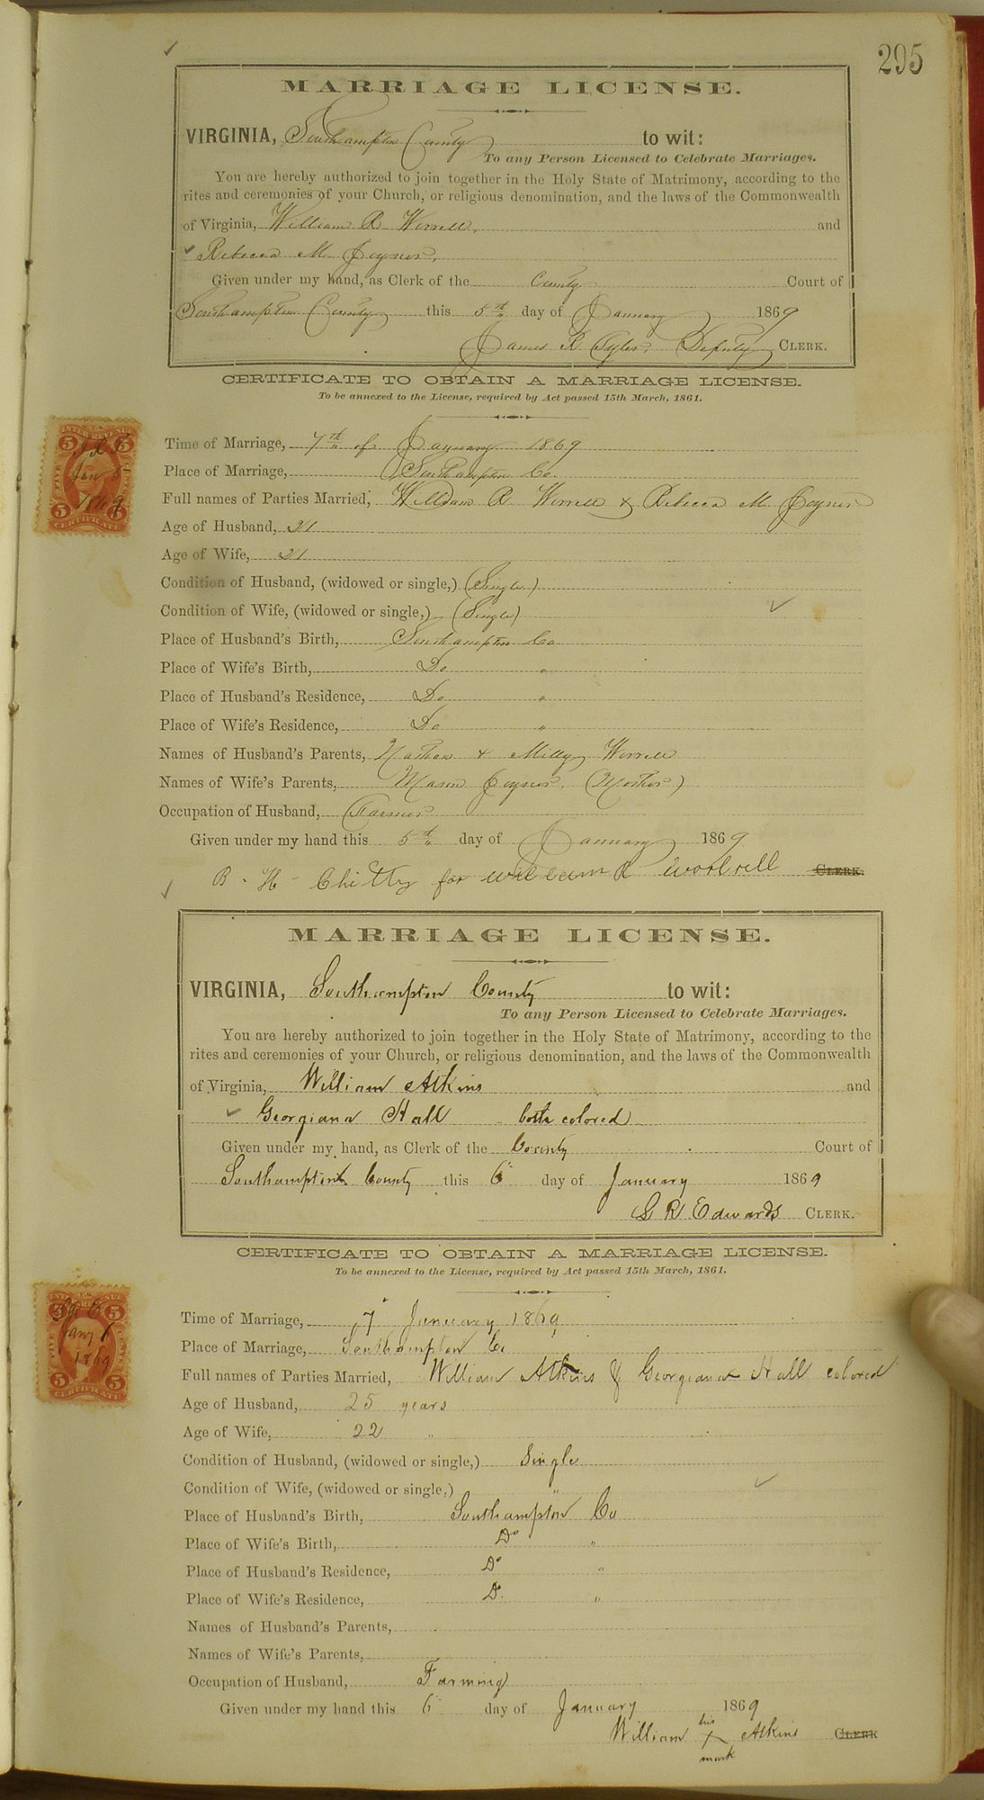 295
MARRIAGE LICENSE.
VIRGINIA, Southampton County to wit:
To any Person Licensed to Celebrate Marriages.
You are hereby authorized to join together in the Holy State of Matrimony, according to the
rites and ceremonies of your Church, or religious denomination, and the laws of the Commonwealth
of Virginia, William R Worrell, and
Rebecca M Joyner,
Given under my hand, as Clerk of the County Court of
Southampton County this 5th day of January 1869
James R Tyler, Deputy CLERK.
CERTIFICATE TO OBTAIN A MARRIAGE LICENSE.
To be annexed to the License, required by Act passed 15th March, 1861.
Time of Marriage, 7th of January 1869
Place of Marriage, Southampton Co.
Full names of Parties Married, William R Worrell & Rebecca M Joyner
Age of Husband, 21
Age of Wife, 21
Condition of Husband, (widowed or single,) (Single)
Condition of Wife, (widowed or single,) (Single)
Place of Husband's Birth, Southampton Co
Place of Wife's Birth, Do "
Place of Husband's Residence, Do "
Place of Wife's Residence, Do "
Names of Husband's Parents, Nathan & Milly Worrell
Names of Wife's Parents, Mason Joyner, (Mother)
Occupation of Husband, Farmer
Given under my hand this 5th day of January 1869
B. H. Chitty for William R Worlrell CLERK.
Jan 5
1869
MARRIAGE LICENSE.
VIRGINIA, Southampton County to wit:
To any Person Licensed to Celebrate Marriages.
You are hereby authorized to join together in the Holy State of Matrimony, according to the
rites and ceremonies of your Church, or religious denomination, and the laws of the Commonwealth
of Virginia, William Atkins and
Georgiana Hall both colored
Given under my hand, as Clerk of the County Court of
Southampton County this 6 day of January 1869
L R Edwards CLERK.
CERTIFICATE TO OBTAIN A MARRIAGE LICENSE.
To be annexed to the License, required by Act passed 15th March, 1861.
Time of Marriage, 7 January 1869
Place of Marriage, Southampton Co
Full names of Parties Married, William Atkins & Georgiana Hall colored
Age of Husband, 25 years
Age of Wife, 22 "
Condition of Husband, (widowed or single,) Single
Condition of Wife, (widowed or single,) "
Place of Husband's Birth, Southampton Co
Place of Wife's Birth, Do "
Place of Husband's Residence, Do "
Place of Wife's Residence, Do "
Names of Husband's Parents,
Names of Wife's Parents,
Occupation of Husband, Farming
Given under my hand this 6 day of January 1869
William his X mark Atkins CLERK
Jany 6
1869